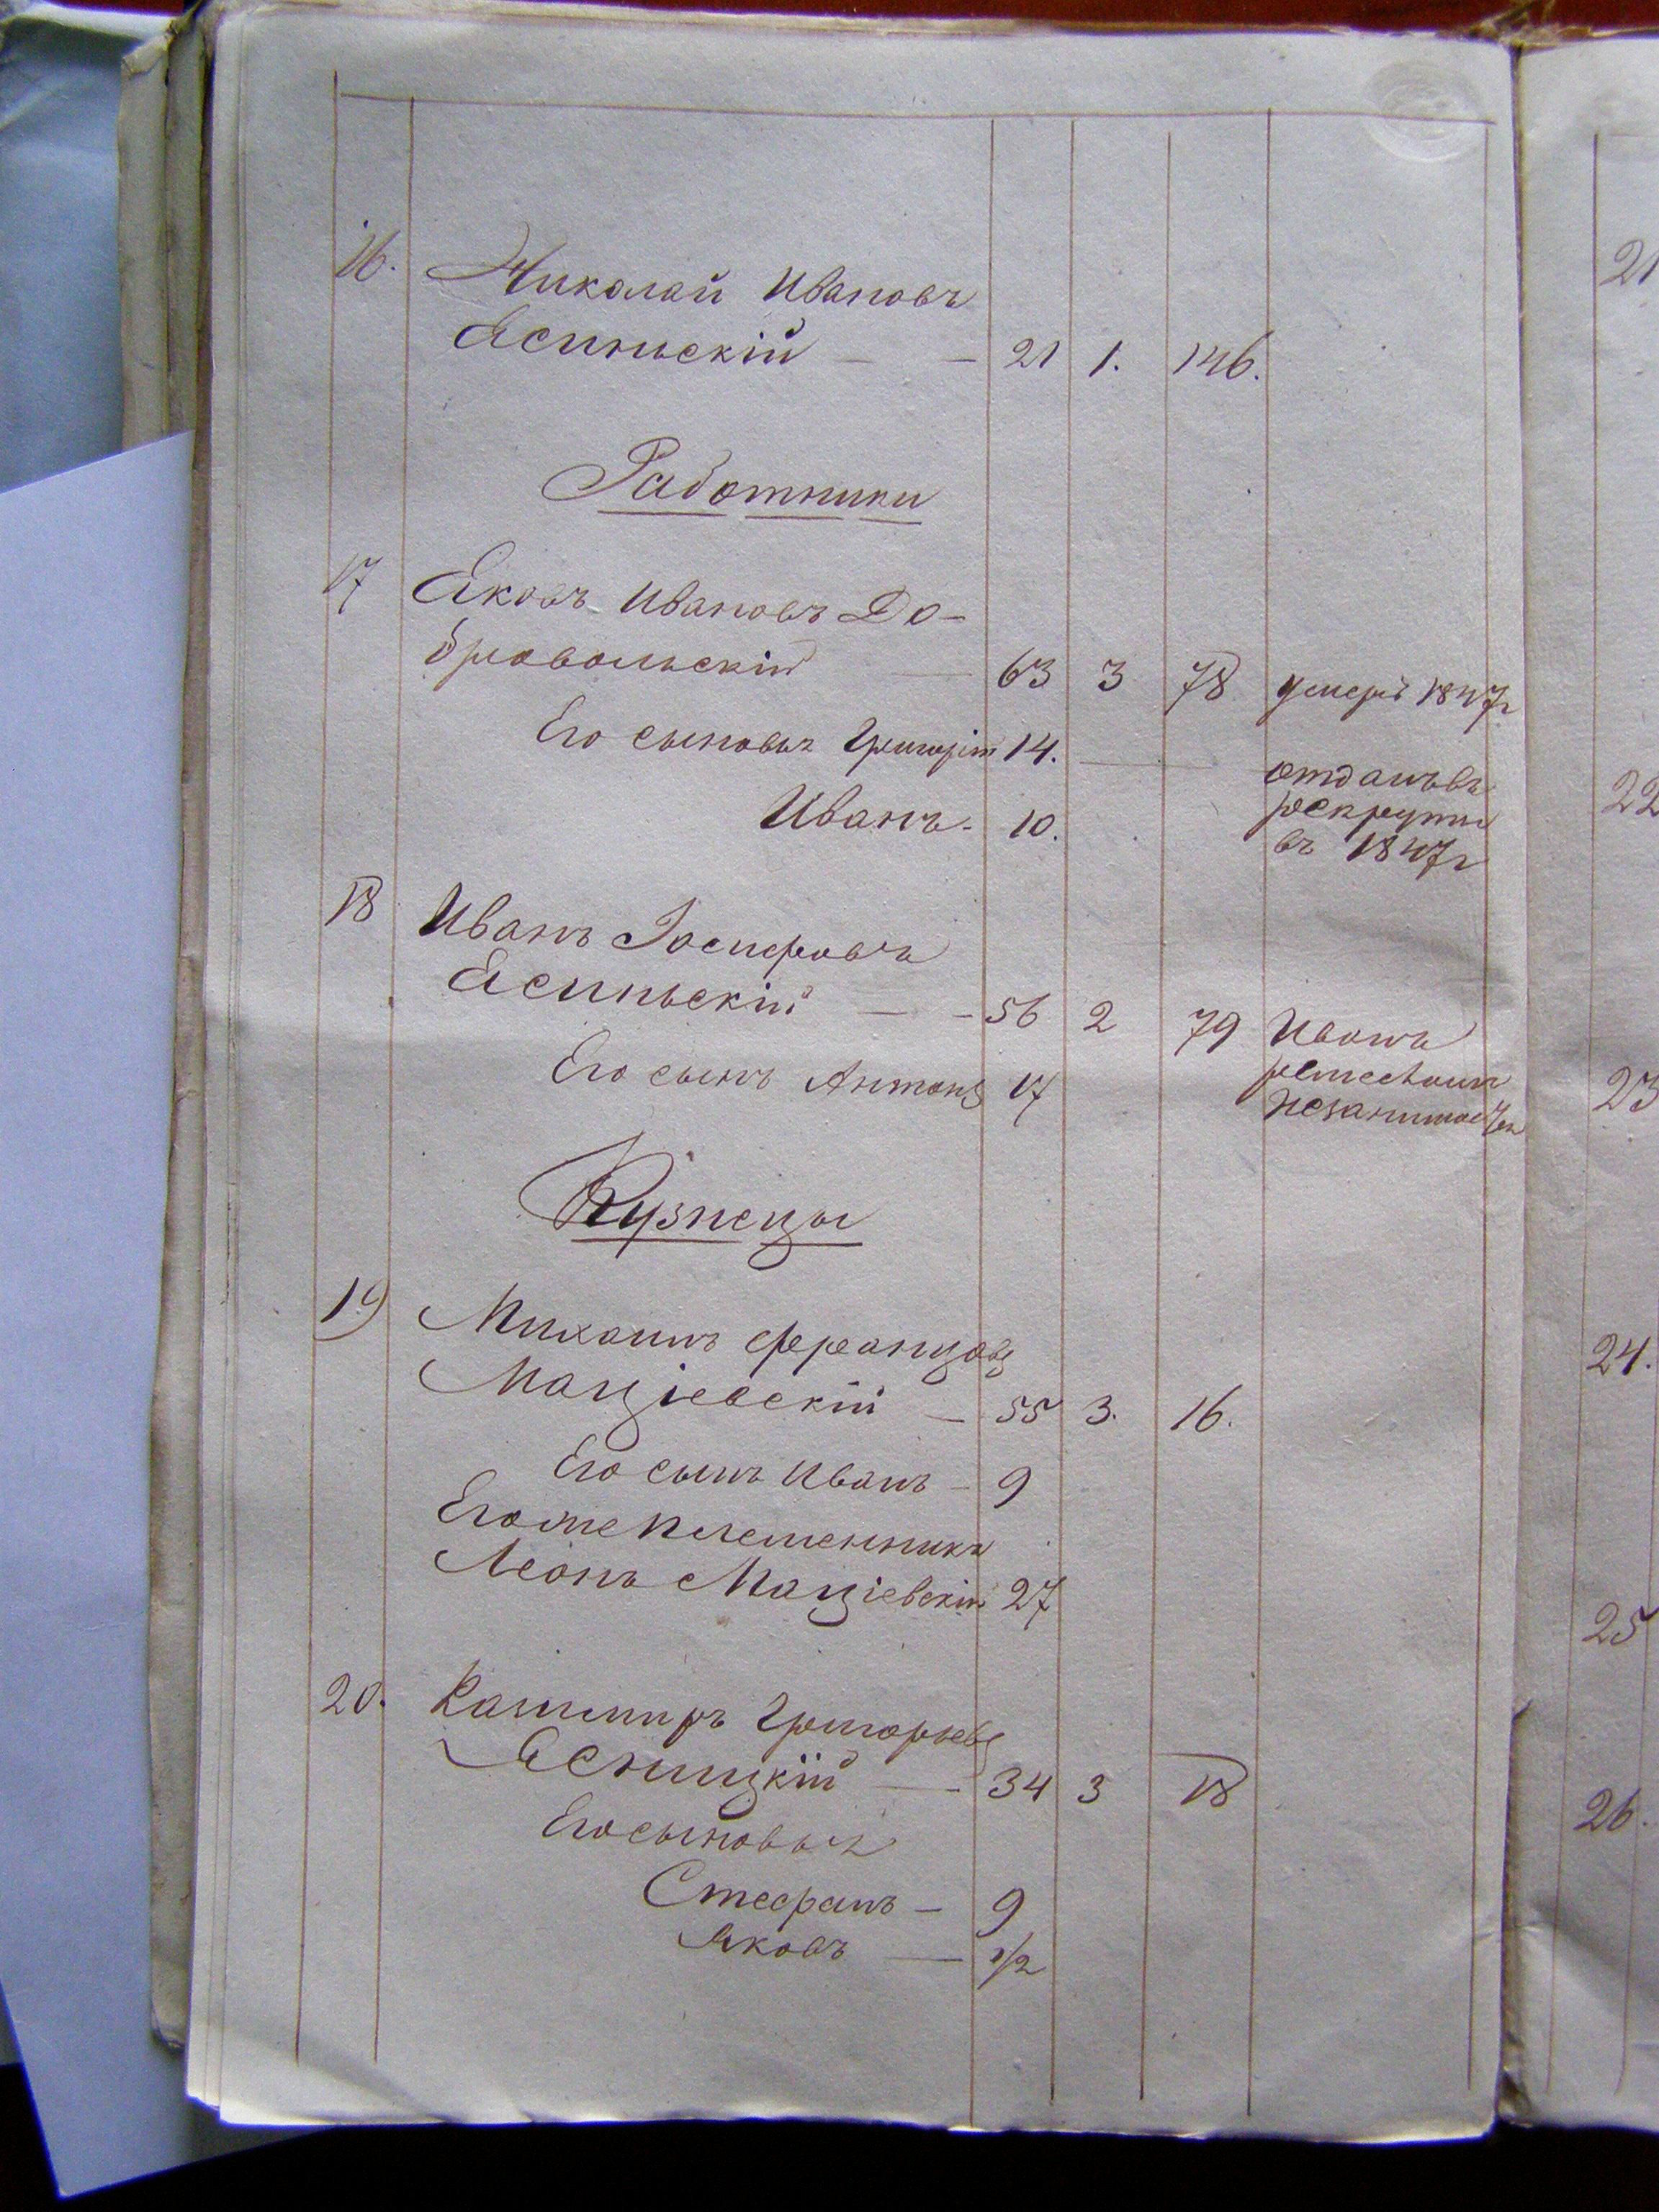 16. Николай Ивановъ
Ясиньскій — — 21 1. 146.
Работники
17 Яковъ Ивановъ До-
бровольскій — 63 3 78 умеръ 1847г
Его сыновья Григорій 14. отданъ въ
Иванъ - 10. рекруты
въ 1847г
18 Иванъ Іосифовъ
Ясиньскій — — 56 2 79 Иванъ
Его сынъ Антонъ 17 ремесломъ
незанимается
Кузнецы
19 Михаилъ Францовъ
Маціевскій — 55 3. 16.
Его сынъ Иванъ - 9
Егоже племенникъ
Леонъ Маціевскій 27
20. Казимиръ Григорьевъ
Ясницкій — 34 3 18
Его сыновья
Стефанъ — 9
Яковъ — 1/2
21
22
23
24.
25
26.